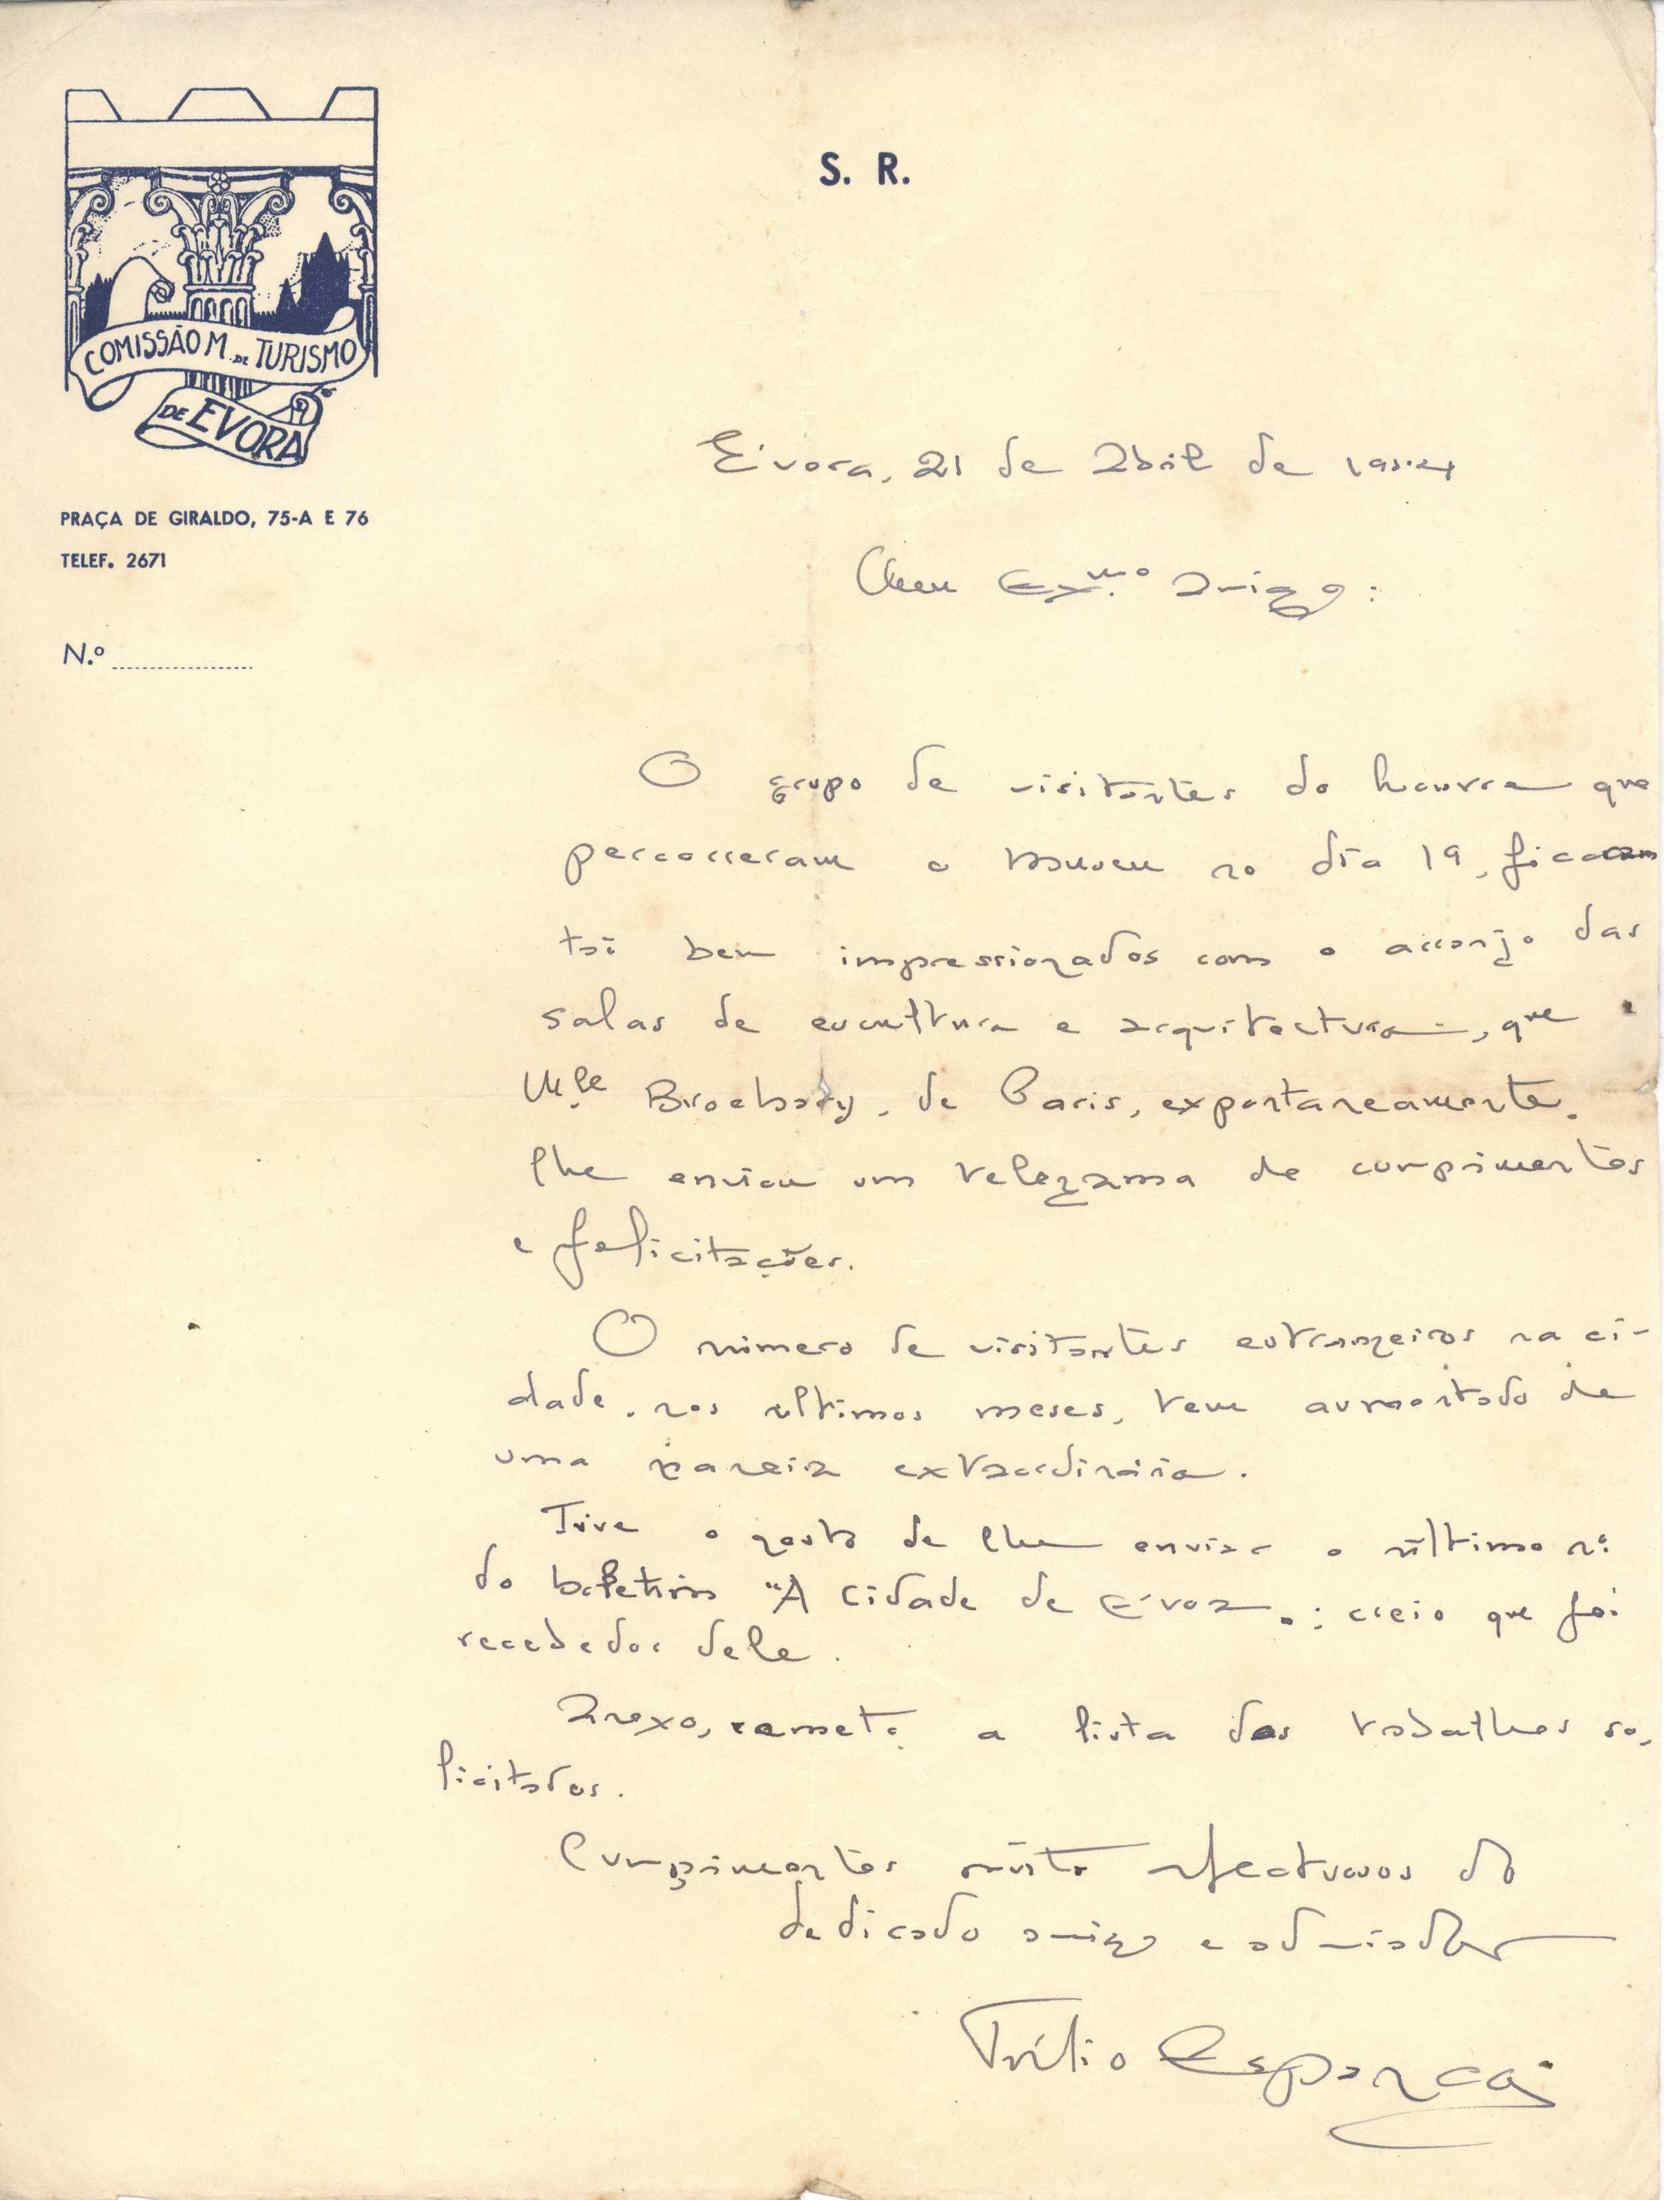 S. R.
COMISSÃO M. DE TURISMO
DE EVORA
PRAÇA DE GIRALDO, 75-A E 76
TELEF. 2671
N.º
Évora, 21 de Abril de
Meu Ex.mo Amigo:
O grupo de visitantes do Louvre que
percorreram o Museu no dia 19, ficaram
tão bem impressionados com o arranjo das
salas de escultura e arquitectura, que
M.le de Paris, expontaneamente,
lhe enviou um telegrama de cumprimentos
e felicitações.
O número de visitantes estrangeiros na ci-
dade, nos ultimos meses, tem aumentado de
uma maneira extraordinária.
Tive o gosto de lhe enviar o último n.º
do boletim "A Cidade de Évora"; creio que foi
recebedor dele.
Anexo, remeto a lista dos trabalhos so-
licitados.
Cumprimentos muito afectuosos do
dedicado amigo e admirador
Túlio Espanca